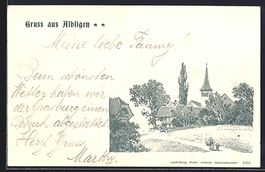 Gruss aus Albligen
Meine liebe Fanny!
Beim schönsten
Wetter haben wir
der Grasburg einen
Besuch abgestattet
Herzl. Gruss